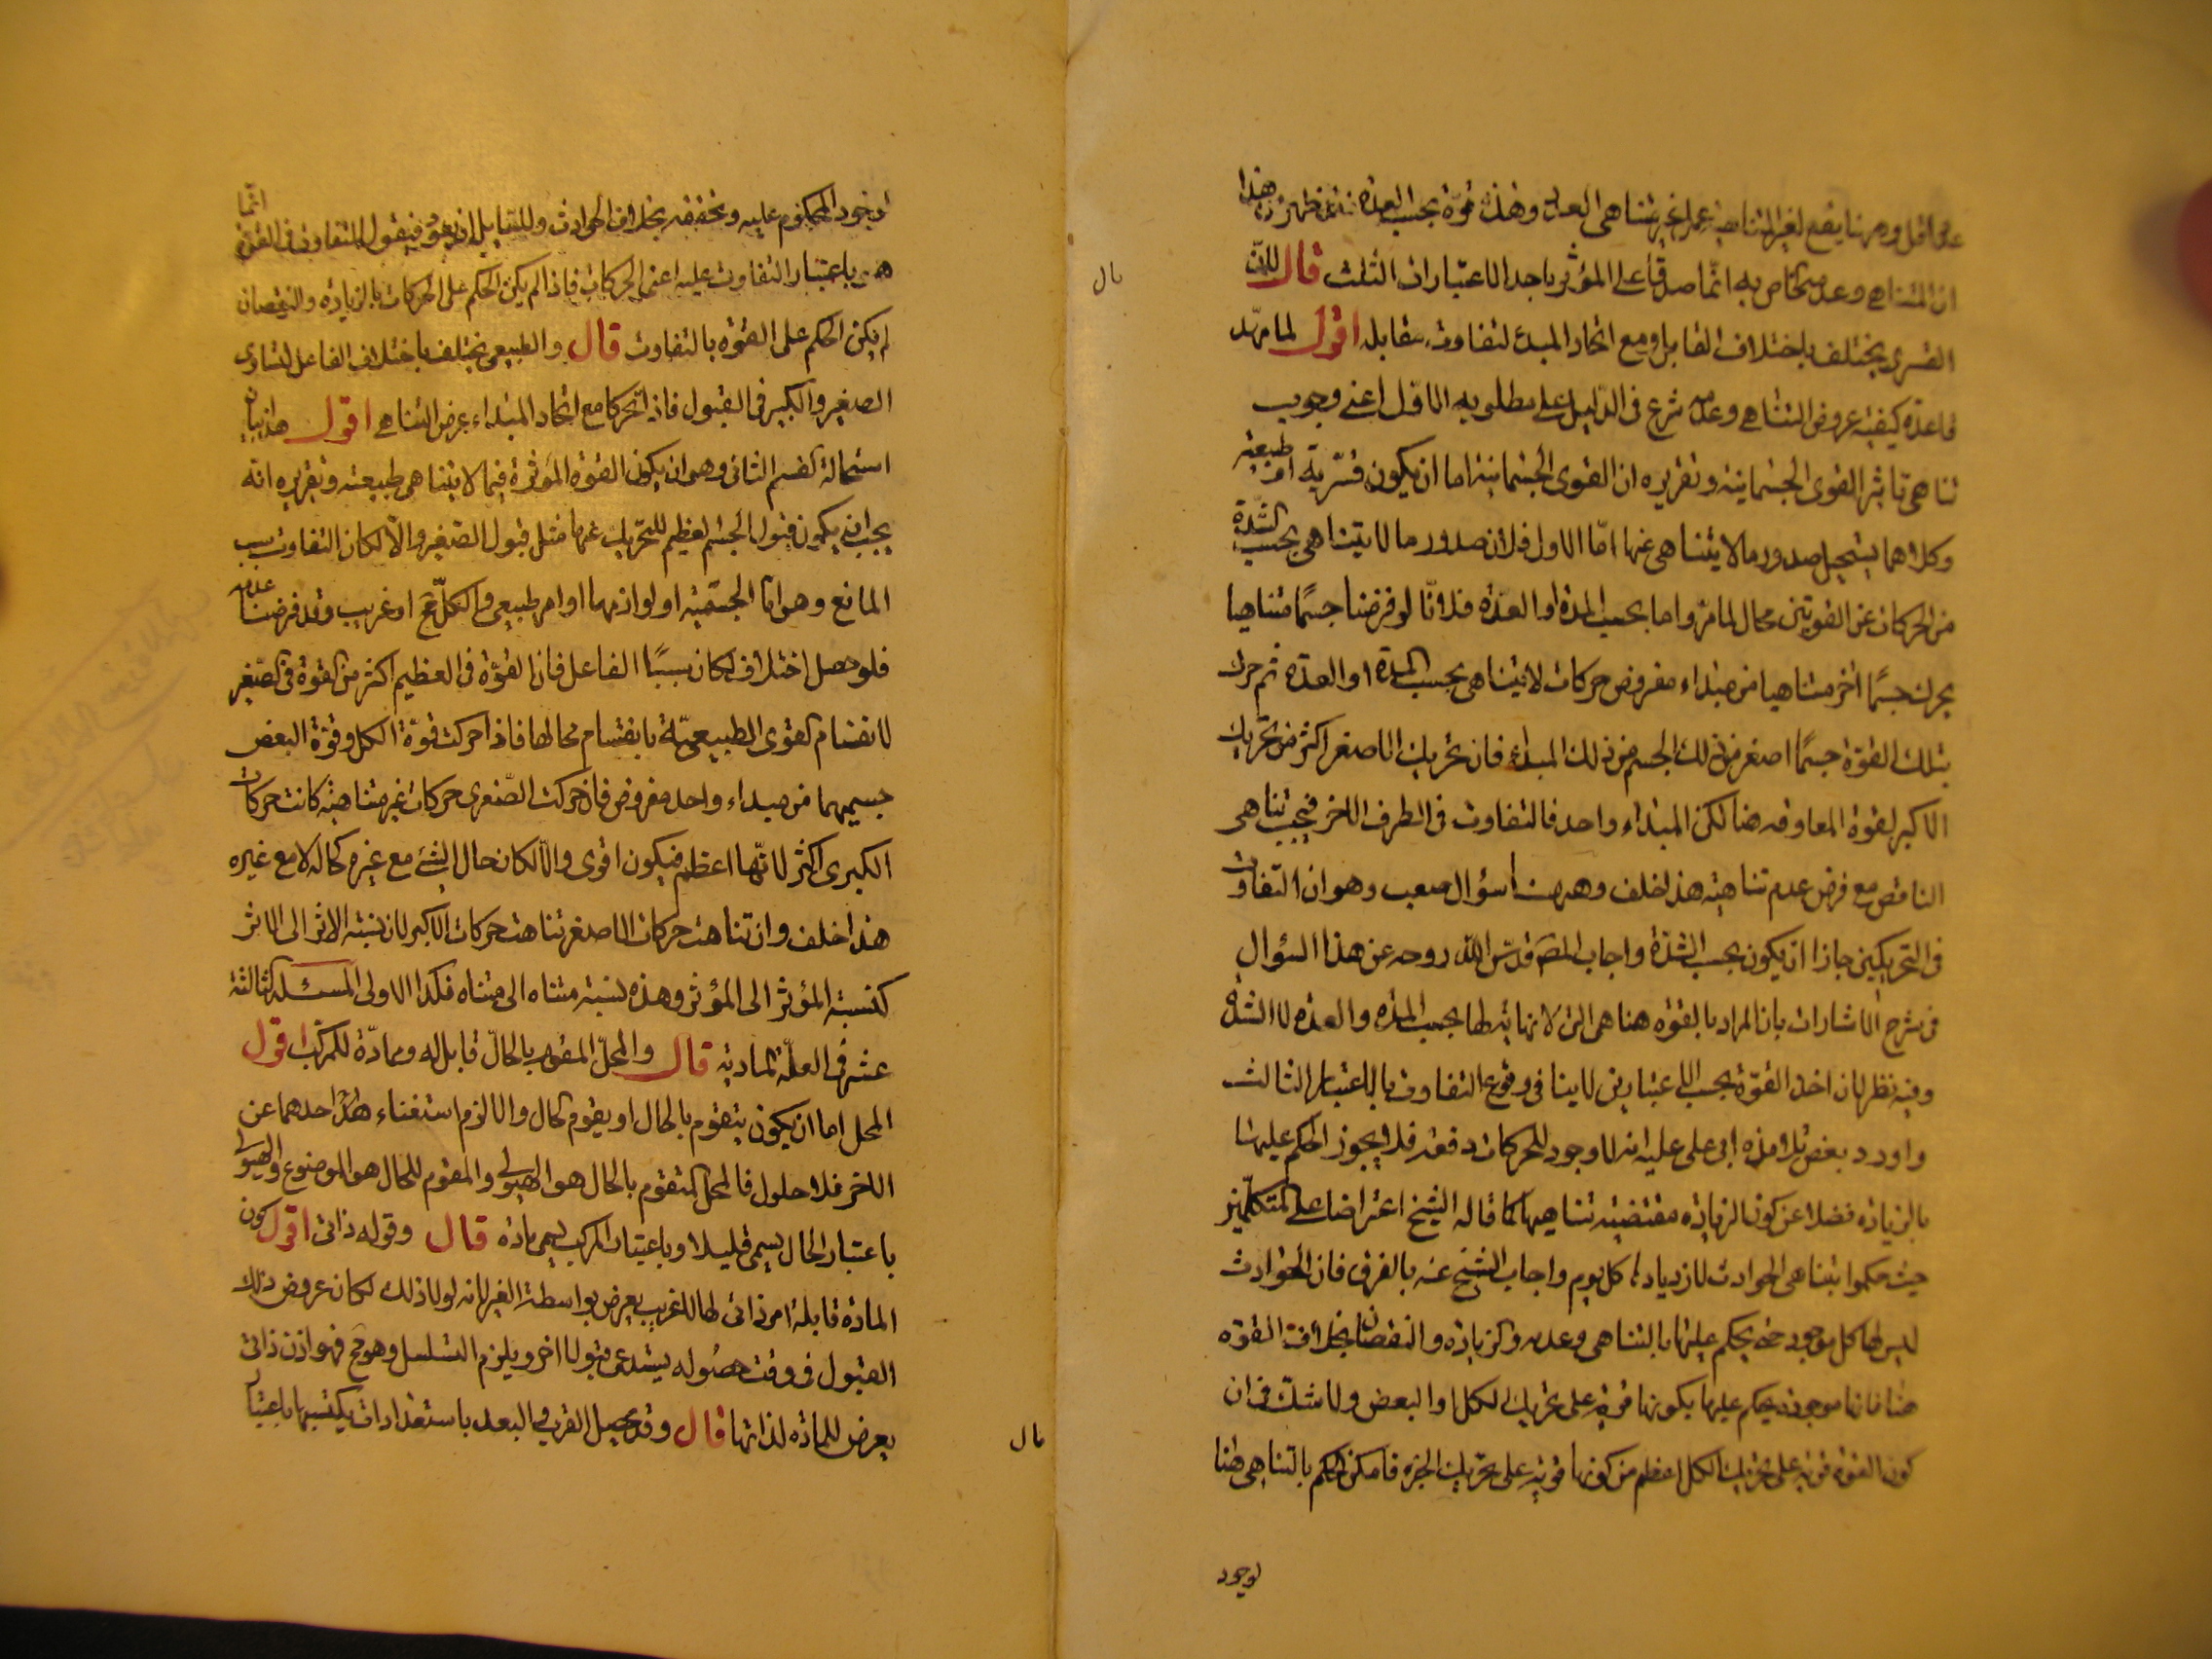 عمل اقل ومن هنا يقع لغير المتناهية عمل غير متناهى العدد وهذه قوة بحسب العدة فقد ظهر من هذا
ان التناهى وعدمه الخاص به انما صدقا على المؤثر باحد الاعتبارات الثلث قال لان
القسرى يختلف باختلاف القابل ومع اتحاد المبدء لتفاوت مقابله اقول لما مهّد
قاعدة كيفية عروض التناهى وعدمه شرع فى الدليل على مطلوبه الاوّل اعنى وجوب
تناهى تاثير القوى الجسمانية وتقريره ان القوى الجسمانية اما ان يكون قسرية او طبيعية
وكلاهما يستحيل صدور ما لا يتناهى عنها امّا الاول فلان صدور ما لا يتناهى بحسب الشدّة
من الحركات عن القوتين محال لما مرّ واما بحسب المدة او العدّة فلانّا لو فرضنا جسمًا متناهيا
يحرك جسمًا اخر متناهيا من مبداء مفروض حركات لا يتناهى بحسب المدة او العدّة ثم حرك
بتلك القوّة جسمًا اصغر من ذلك الجسم من ذلك المبداء فان تحريك الاصغر اكثر من تحريك
الاكبر لقوة المعاوقة هنا لكن المبداء واحد فالتفاوت فى الطرف الاخر فيجب تناهى
الناقص مع فرض عدم تناهيه هذا خلف وههنا سؤال صعب وهو ان التفاوت
فى التحريكين جاز ان يكون بحسب الشدّة واجاب المصَ قدّس اللّه روحه عن هذا السؤال
فى شرح الاشارات بان المراد بالقوة هنا هى التى لا نهاية لها بحسب المدّة والعدّة لا الشدة
وفيه نظر لان اخذ القوّة بحسب الاعتبارين لا ينافى وقوع التفاوت بالاعتبار الثالث
واورد بعض تلامذه ابى على عليه انه لا وجود للحركات دفعة فلا يجوز الحكم عليها
بالزيادة فضلا عن كون الزيادة مقتضية تناهيها كما قاله الشيخ اعتراضا على المتكلّمين
حيث حكموا بتناهى الحوادث لازديادها كل يوم واجاب الشيخ عنه بالفرق فان الحوادث
ليس لها كل موجود حتى يحكم عليها بالتناهى وعدمه والزيادة والنقصان بخلاف القوة
هنا فانها موجودة يحكم عليها بكونها قوية على تحريك الكل او البعض ولا شكّ فى ان
كون القوة قوية على تحريك الكل اعظم من كونها قوية على تحريك الجزء فامكن الحكم بالتناهى هنا
لوجود
لوجود المحكوم عليه وتحققه بخلاف الحوادث وللقايل ان يعود فيقول التفاوت فى القوة انّما
هو باعتبار التفاوت عليه اعنى الحركات فاذا لم يكن الحكم على الحركات بالزيادة والنقصان
لم يكن الحكم على القوة بالتفاوت قال والطبيعى يختلف باختلاف الفاعل لتساوى
الصغير والكبير فى القبول فاذا تحركا مع اتحاد المبداء عرض التناهى اقول هذا بيان
استحالة القسم الثانى وهو ان يكون القوة المؤثرة فيما لا يتناهى طبيعته وتقريره انّه
يجب ان يكون قبول الجسم العظيم للتحريك عنها مثل قبول الصغير والّا لكان التفاوت بسبب
المانع وهو امّا الجسميّة او لوازمها او امر طبيعى والكلّ مح او غريب وقد فرضنا عدمه
فلو حصل اختلاف لكان بسبب الفاعل فان القوّة فى العظيم اكثر من القوة فى الصّغير
لانقسام القوى الطبيعيّة بانقسام محالها فاذا حركت قوّة الكل وقوّة البعض
جسميهما من مبداء واحد مفروض فان حركت الصّغرى حركات غير متناهية كانت حركات
الكبرى اكثر لانّها اعظم فيكون اقوى والّا لكان حال الشئ مع غيره كحاله لا مع غيره
هذا خلف وان تناهت حركات الاصغر تناهت حركات الاكبر لان نسبة الاثر الى الاثر
كنسبة المؤثر الى المؤثر وهذه نسبة متناه الى متناه فكذا الاولى المسئلة الثالثة
عشر فى العلّة المادية قال والمحلّ المتقوم بالحالّ قابل له ومادّة للمركّب اقول
المحل اما ان يكون يتقوم بالحال او يقوم الحال والا لزم استغناء كلّ احدهما عن
الاخر فلا حلول فالمحل المتقوم بالحال هو الهيولى والمقوم للحال هو الموضوع والهيولى
باعتبار الحال يسمى قابلا وباعتبار المركب يسمى مادّة قال وقوله ذاتى اقول كون
المادّة قابلة امر ذاتى لها لا غريب يعرض بواسطة الغير لانه لولا ذلك لكان عروض ذلك
القبول فى وقت حصوله يستدعى قبولا اخر ويلزم التسلسل وهو مح فهو اذن ذاتى
يعرض للمادّه لذاتها قال وقد يحصل القرب والبعد باستعدادات يكتسبها باعتبار